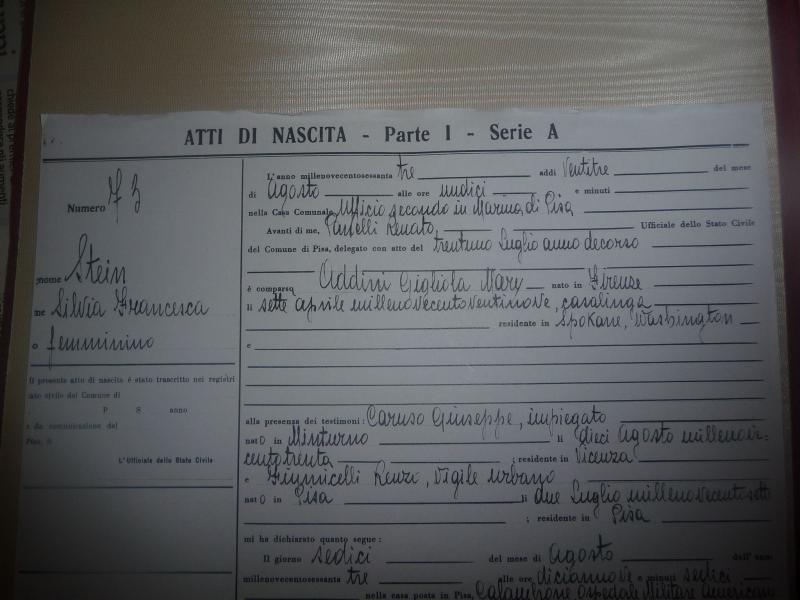 ATTI DI NASCITA - Parte I - Serie A
Numero 73
nome Stein
me Silvia Francesca
o femminino
Il presente atto di nascita è stato trascritto nei registri
tato civile del Comune di
P. S anno
e da comunicazione del
Pisa, li
L'Ufficiale dello Stato Civile
L'anno millenovecentosessanta tre addì Ventitre del mese
di Agosto alle ore undici e minuti
nella Casa Comunale Ufficio secondo in Marina di Pisa
Avanti di me, Renato, Ufficiale dello Stato Civile
del Comune di Pisa, delegato con atto del trentuno Luglio anno decorso
è comparsa Addini Gigliola Mary nato in Firenze
li sette aprile millenovecentoventinove, casalinga
residente in Spokane, Washington
e
alla presenza dei testimoni: Caruso Giuseppe, impiegato
nato in Minturno li dieci Agosto millenove=
centotrenta ; residente in Vicenza
e Renzo, Vigile urbano
nato in Pisa li due Luglio millenovecentosett
; residente in Pisa
mi ha dichiarato quanto segue:
Il giorno sedici del mese di Agosto dell'anno
millenovecentosessanta tre alle ore diciannove e minuti sedici
nella casa posta in Pisa, Calambrone Ospedale Militare American